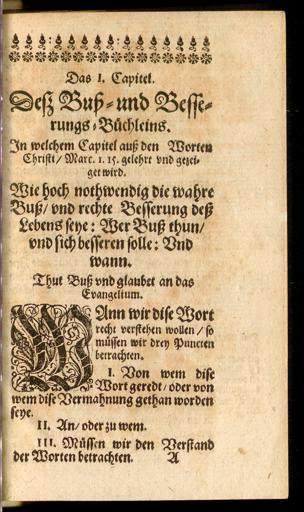 Das I. Capitel.
Deß Buß- und Besse-
rungs-Büchleins.
In welchem Capitel auß den Worten
Christi / Marc. 1. 15. gelehrt vnd gezei-
get wird.
Wie hoch nothwendig die wahre
Buß / vnd rechte Besserung deß
Lebens seye: Wer Buß thun /
vnd sich besseren solle: Vnd
wann.
Thut Buß vnd glaubet an das
Evangelium.
WAnn wir dise Wort
recht verstehen wollen / so
müssen wir drey Puncten
betrachten.
I. Von wem dise
Wort geredt / oder von
wem dise Vermahnung gethan worden
seye.
II. An / oder zu wem.
III. Müssen wir den Verstand
der Worten betrachten. A